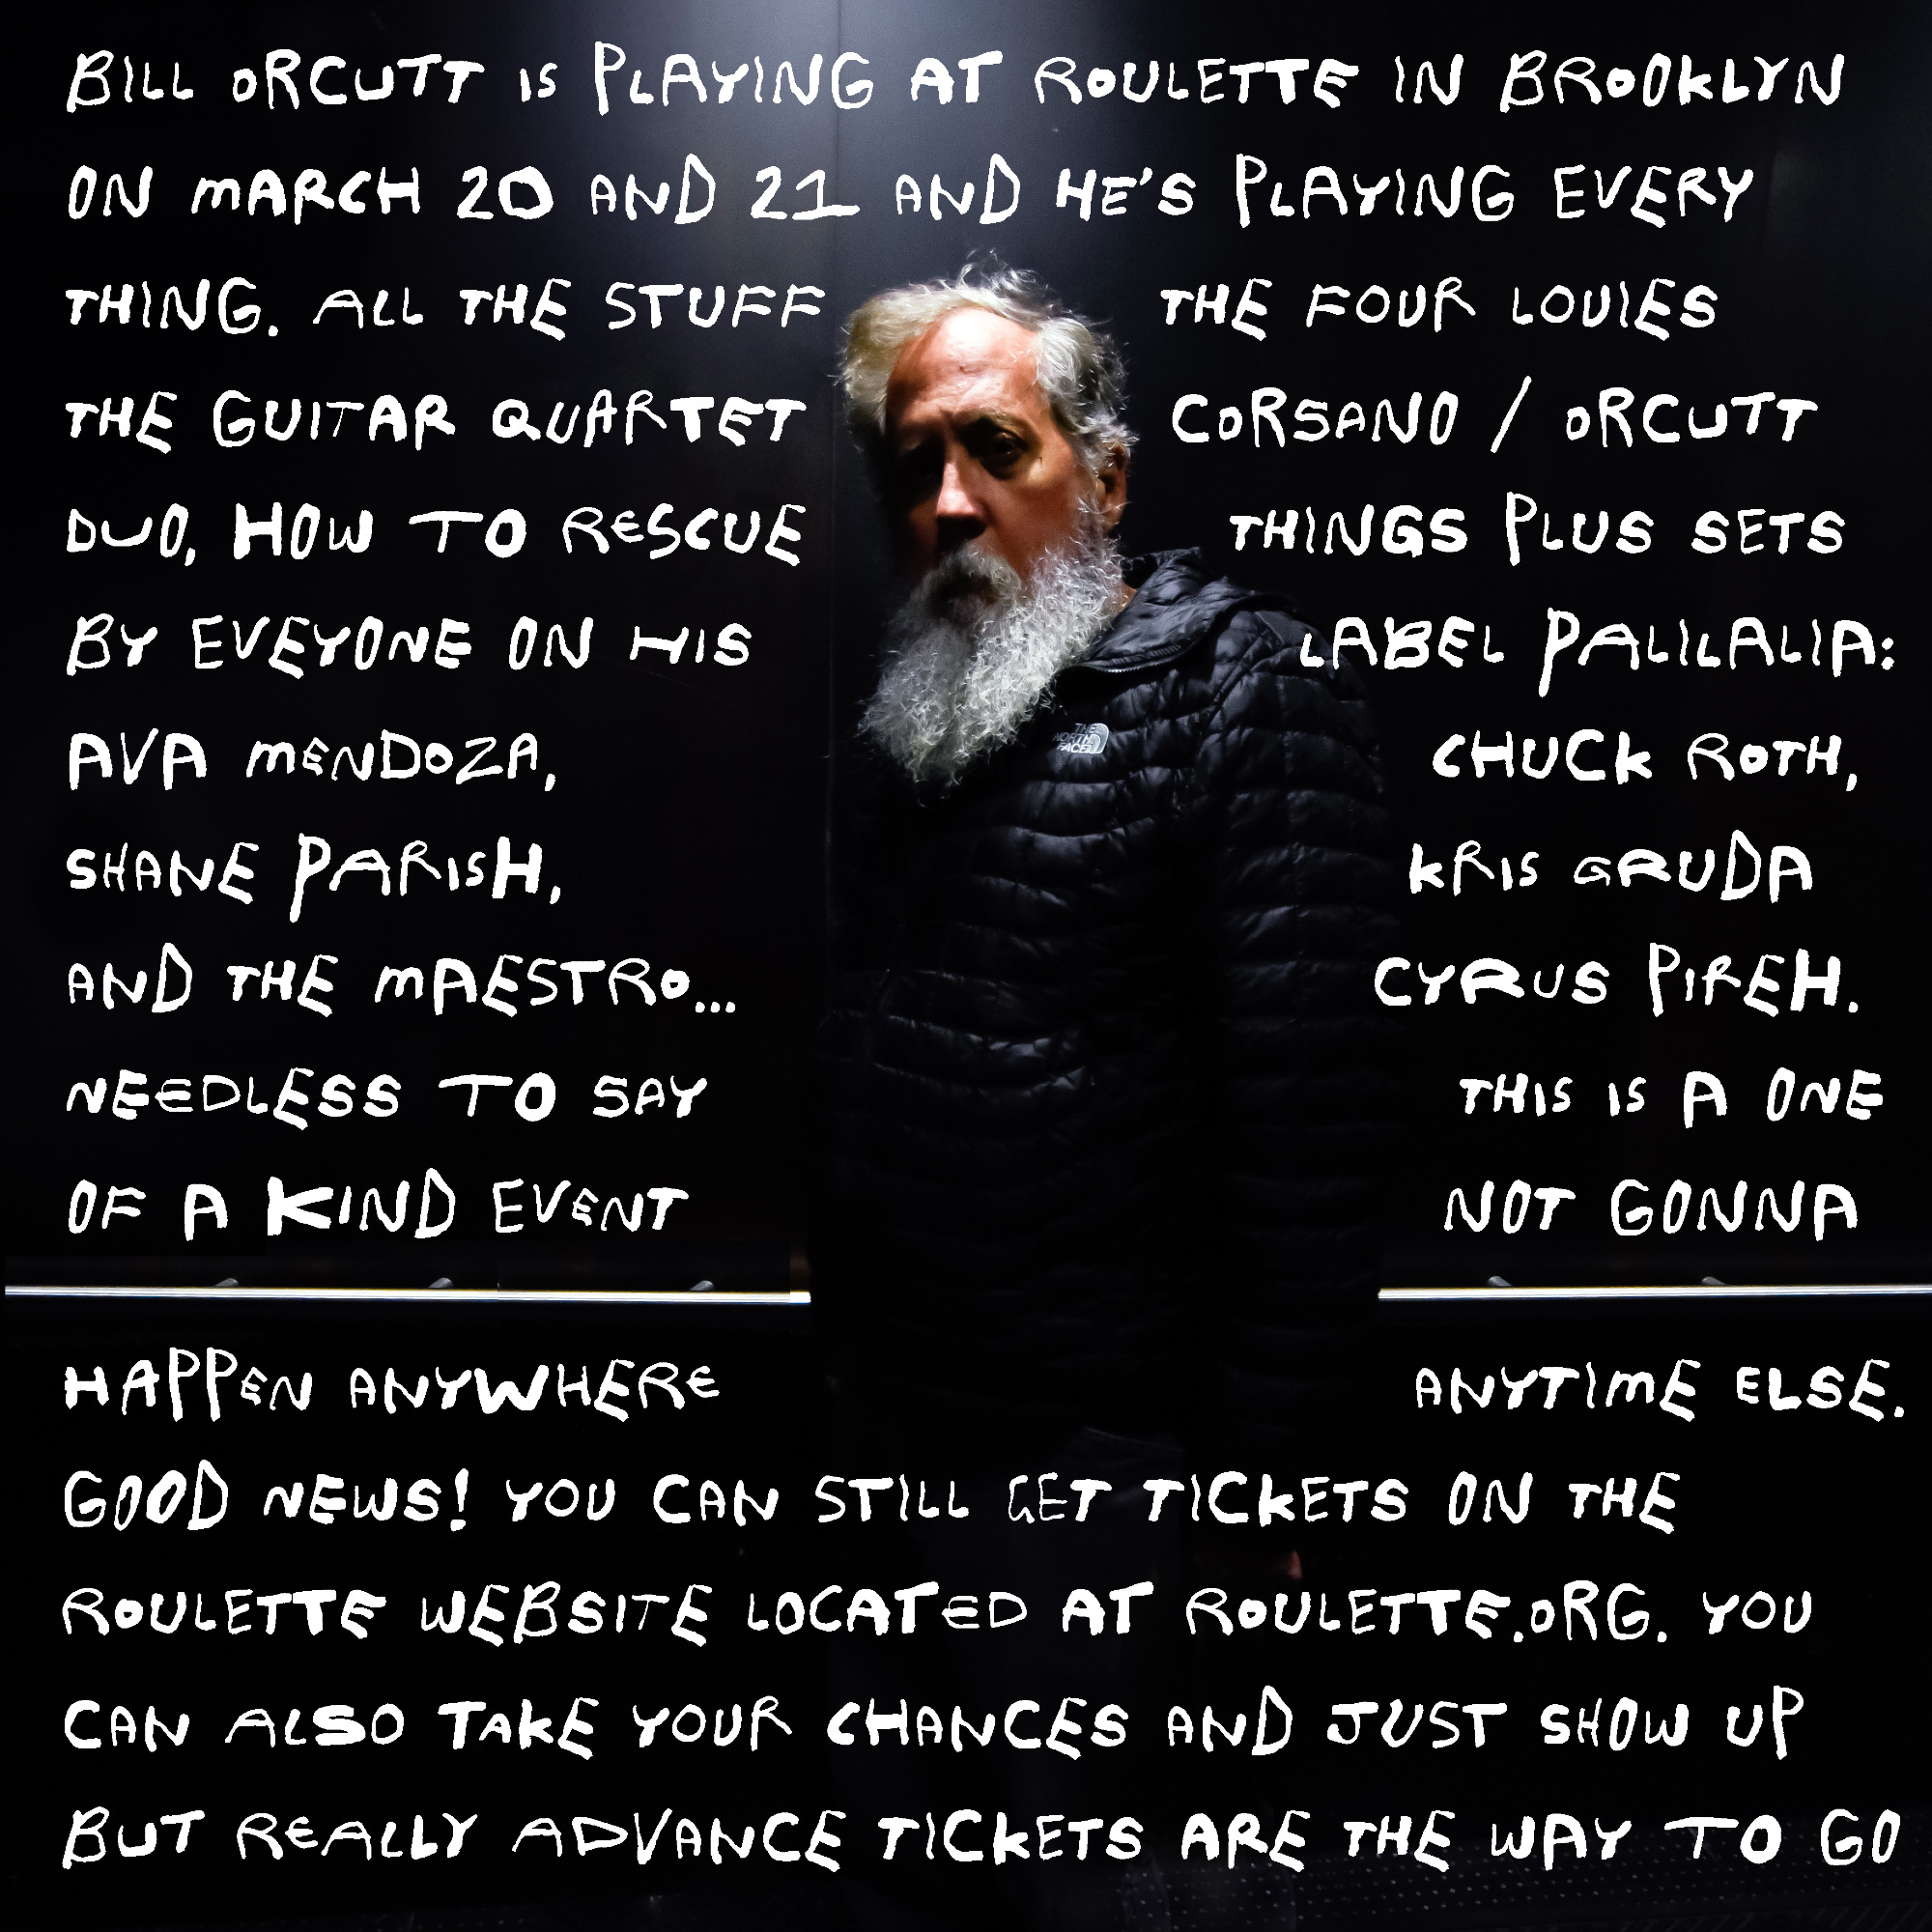 BILL ORCUTT IS PLAYING AT ROULETTE IN BROOKLYN
ON MARCH 20 AND 21 AND HE'S PLAYING EVERY
THING. ALL THE STUFF THE FOUR LOUIES
THE GUITAR QUARTET CORSANO / ORCUTT
DUO, HOW TO RESCUE THINGS PLUS SETS
BY EVEYONE ON HIS LABEL PALILALIA:
AVA MENDOZA, CHUCK ROTH,
SHANE PARISH, KRIS GRUDA
AND THE MAESTRO... CYRUS PIREH.
NEEDLESS TO SAY THIS IS A ONE
OF A KIND EVENT NOT GONNA
HAPPEN ANYWHERE ANYTIME ELSE.
GOOD NEWS! YOU CAN STILL GET TICKETS ON THE
ROULETTE WEBSITE LOCATED AT ROULETTE.ORG. YOU
CAN ALSO TAKE YOUR CHANCES AND JUST SHOW UP
BUT REALLY ADVANCE TICKETS ARE THE WAY TO GO
THE
NORTH
FACE